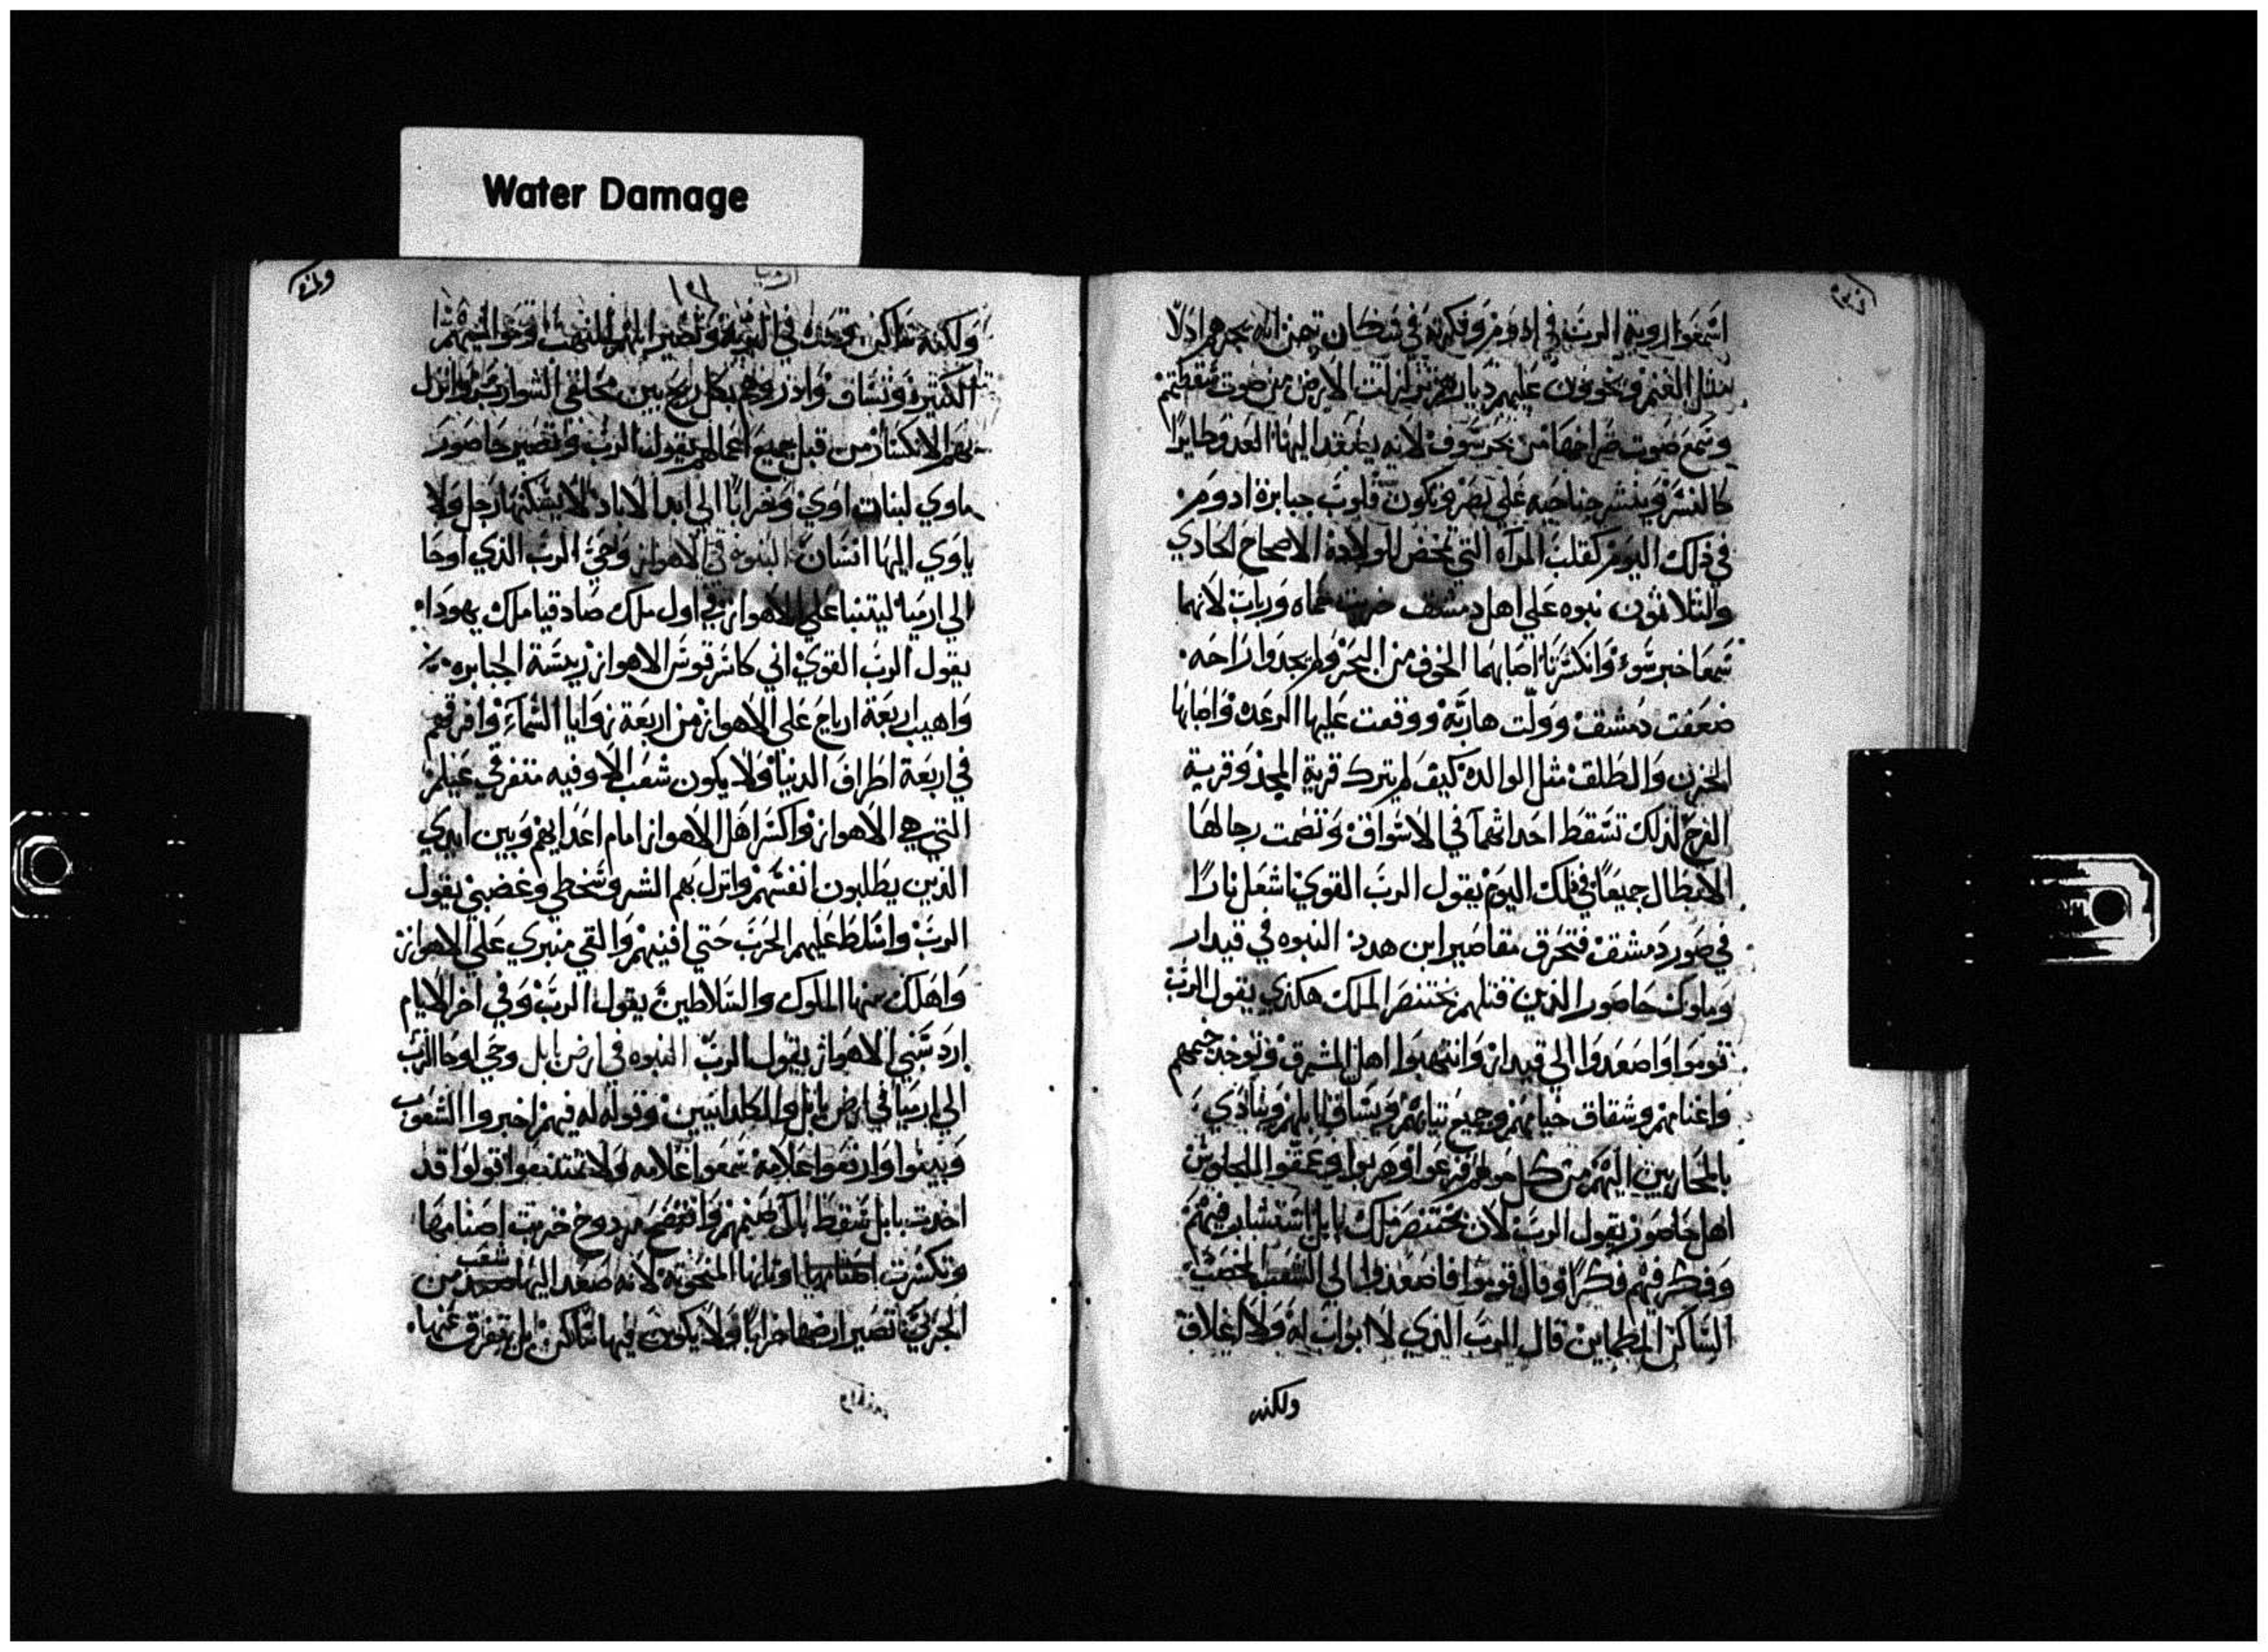 Water Damage
اسمعوا روية الرب في ادوم وفكرته في قطان تيمن انه يجرهم اذلا
مثل الغنم ويخربون عليهم ديارهم تزلزلت الارض من صوت سقطتهم
وسمع صوت صراخها من بحر سوف لانه يصعد اليها العدو طايرا
كالنسر وينشر جناحيه علي بصر وتكون قلوب جبابرة ادوم
في ذلك اليوم كقلب المرآه التي تمخض للولادة الاصحاح الحادي
والثلاثون نبوه علي اهل دمشق خزيت حماه ورباث لانهما
سمعا خبر سوء وانكسرتا اصابهما الخوف من البحر ولم يجدوا راحه
ضعفت دمشق وولت هاربة ووقعت عليها الرعده واصابها
الحزن والطلق مثل الوالده كيف لم يترك قرية المجد وقرية
الفرح لذلك تسقط احداثها في الاسواق وتضمت رجالها
الابطال جميعا في ذلك اليوم يقول الرب القوي اشعل نارا
في صور دمشق فتحرق مقاصير ابن هدد النبوه في قيدار
وملوك حاصور الذين قتلهم بختنصر الملك هكذي يقول الرب
قوموا واصعدوا الي قيدار وانتهبوا اهل المشرق وتوخذ خيمهم
واغنامهم وشقاق خيامهم وجميع ثيابهم ويساق ابلهم وينادي
بالمحاربين اليهم من كل حولهم فزعوا وهربوا وعمقوا الجلوس
اهل حاصور يقول الرب لان بختنصر ملك بابل استشار فيهم
وفكر فيهم فكرا وقال قوموا فاصعدوا الي الشعب الخصب
الساكن المطماين قال الرب الذي لا ابواب له ولا اغلاق
ولكنه
ولكنه ساكن وحده في البرية وتصير ابلهم للنهب ومواشيهم
الكثيره وتساق واذروهم بكل ريح بين محلقي الشوارب وانزل
بهم الانكسار من قبل جميع اعمالهم يقول الرب وتصير حاصور
ماوي لبنات اوي وخرابا الي ابد الاباد لا يسكنها رجل ولا
ياوي اليها انسان النبوة في الاهواز وحي الرب الذي اوحا
الي ارميا ليتنبا علي الاهواز في اول ملك صادقيا ملك يهودا
يقول الرب القوي اني كاسر قوس الاهواز ريسة الجبابره
واهيب اربعة ارياح علي الاهواز من اربعة زوايا السماء وافرقهم
في اربعة اطراف الدنيا ولا يكون شعب الا وفيه متفرقي عيلم
التي هي الاهواز واكسر اهل الاهواز امام اعدايهم وبين ايدي
الذين يطلبون انفسهم وانزل بهم الشر وسخطي وغضبي يقول
الرب واسلط عليهم الحرب حتي افنيهم والقي منبري علي الاهواز
واهلك منها الملوك والسلاطين يقول الرب وفي اخر الايام
ارد سبي الاهواز يقول الرب النبوه في ارض بابل وحي اوحا الرب
الي ارميا في ارض بابل والكلدانيين وقوله له فيهم اخبروا الشعوب
وبينوا وارفعوا علامة سمعوا علامه ولا تمتنعوا قولوا قد
اخذت بابل سقط بالا صنمهم وافتضح مردوخ خزيت اصنامها
وتكسرت اوثانها المنحوته لانه صعد اليها شعب من
الجربي تصير ارضها خرابا ولا يكون فيها ساكن بل يتفرق عنها